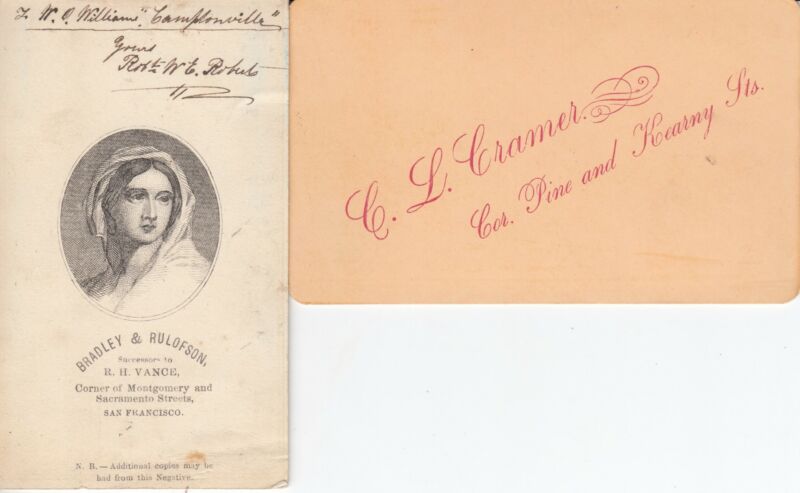 To W. O. Williams, "Camptonville"
Yours
Robt. W. E. Roberts
BRADLEY & RULOFSON,
Successors to
R. H. VANCE,
Corner of Montgomery and
Sacramento Streets,
SAN FRANCISCO.
N. B. — Additional copies may be
had from this Negative.
C. L. Cramer.
Cor. Pine and Kearny Sts.